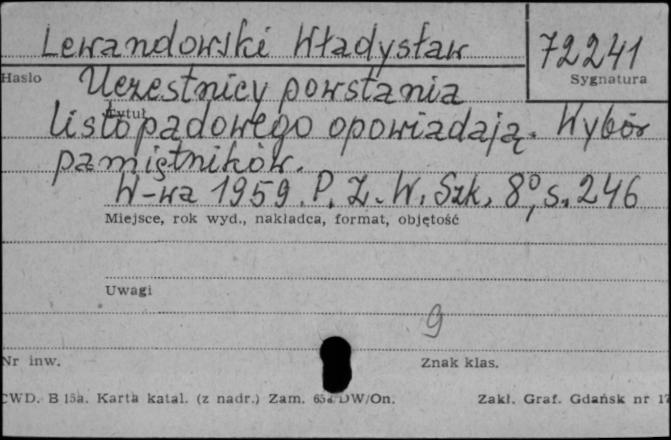 Lewandowski Władysław
72241
Hasło
Sygnatura
Uczestnicy powstania
Tytuł
listopadowego opowiadają. Wybór
pamiętników.
W-wa 1959. P. Z. W. Szk, 8°, s. 246
Miejsce, rok wyd., nakładca, format, objętość
Uwagi
9
Nr inw.
Znak klas.
CWD. B 15a. Karta katal. (z nadr.) Zam. DW/On.
Zakł. Graf. Gdańsk nr